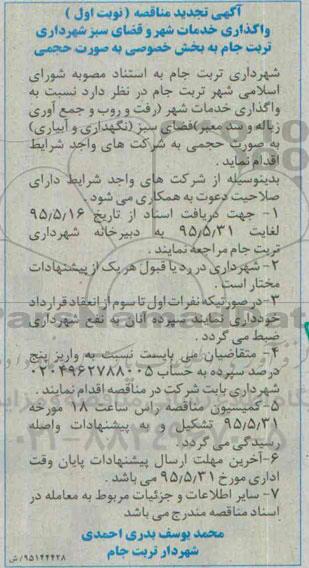 آگهی تجدید مناقصه ( نوبت اول )
واگذاری خدمات شهر و فضای سبز شهرداری
تربت جام به بخش خصوصی به صورت حجمی
شهرداری تربت جام به استناد مصوبه شورای
اسلامی شهر تربت جام در نظر دارد نسبت به
واگذاری خدمات شهر (رفت و روب و جمع آوری
زباله و سد معبر)فضای سبز (نگهداری و آبیاری)
به صورت حجمی به شرکت های واجد شرایط
اقدام نماید .
بدینوسیله از شرکت های واجد شرایط دارای
صلاحیت دعوت به همکاری می شود .
۱- جهت دریافت اسناد از تاریخ ۹۵/۵/۱۶
لغایت ۹۵/۵/۳۱ به دبیرخانه شهرداری
تربت جام مراجعه نمایند .
۲- شهرداری در رد یا قبول هر یک از پیشنهادات
مختار است .
۳-در صورتیکه نفرات اول تا سوم از انعقاد قرارداد
خودداری نمایند سپرده آنان به نفع شهرداری
ضبط می گردد .
۴- متقاضیان می بایست نسبت به واریز پنج
درصد سپرده به حساب ۰۲۰۴۹۶۲۷۸۸۰۰۵
شهرداری بابت شرکت در مناقصه اقدام نمایند .
۵-کمیسیون مناقصه راس ساعت ۱۸ مورخه
۹۵/۵/۳۱ تشکیل و به پیشنهادات واصله
رسیدگی می گردد .
۶-آخرین مهلت ارسال پیشنهادات پایان وقت
اداری مورخ ۹۵/۵/۳۱ می باشد .
۷- سایر اطلاعات و جزئیات مربوط به معامله در
اسناد مناقصه مندرج می باشد .
محمد یوسف بدری احمدی
شهردار تربت جام
۹۵۱۴۴۴۲۸/ش